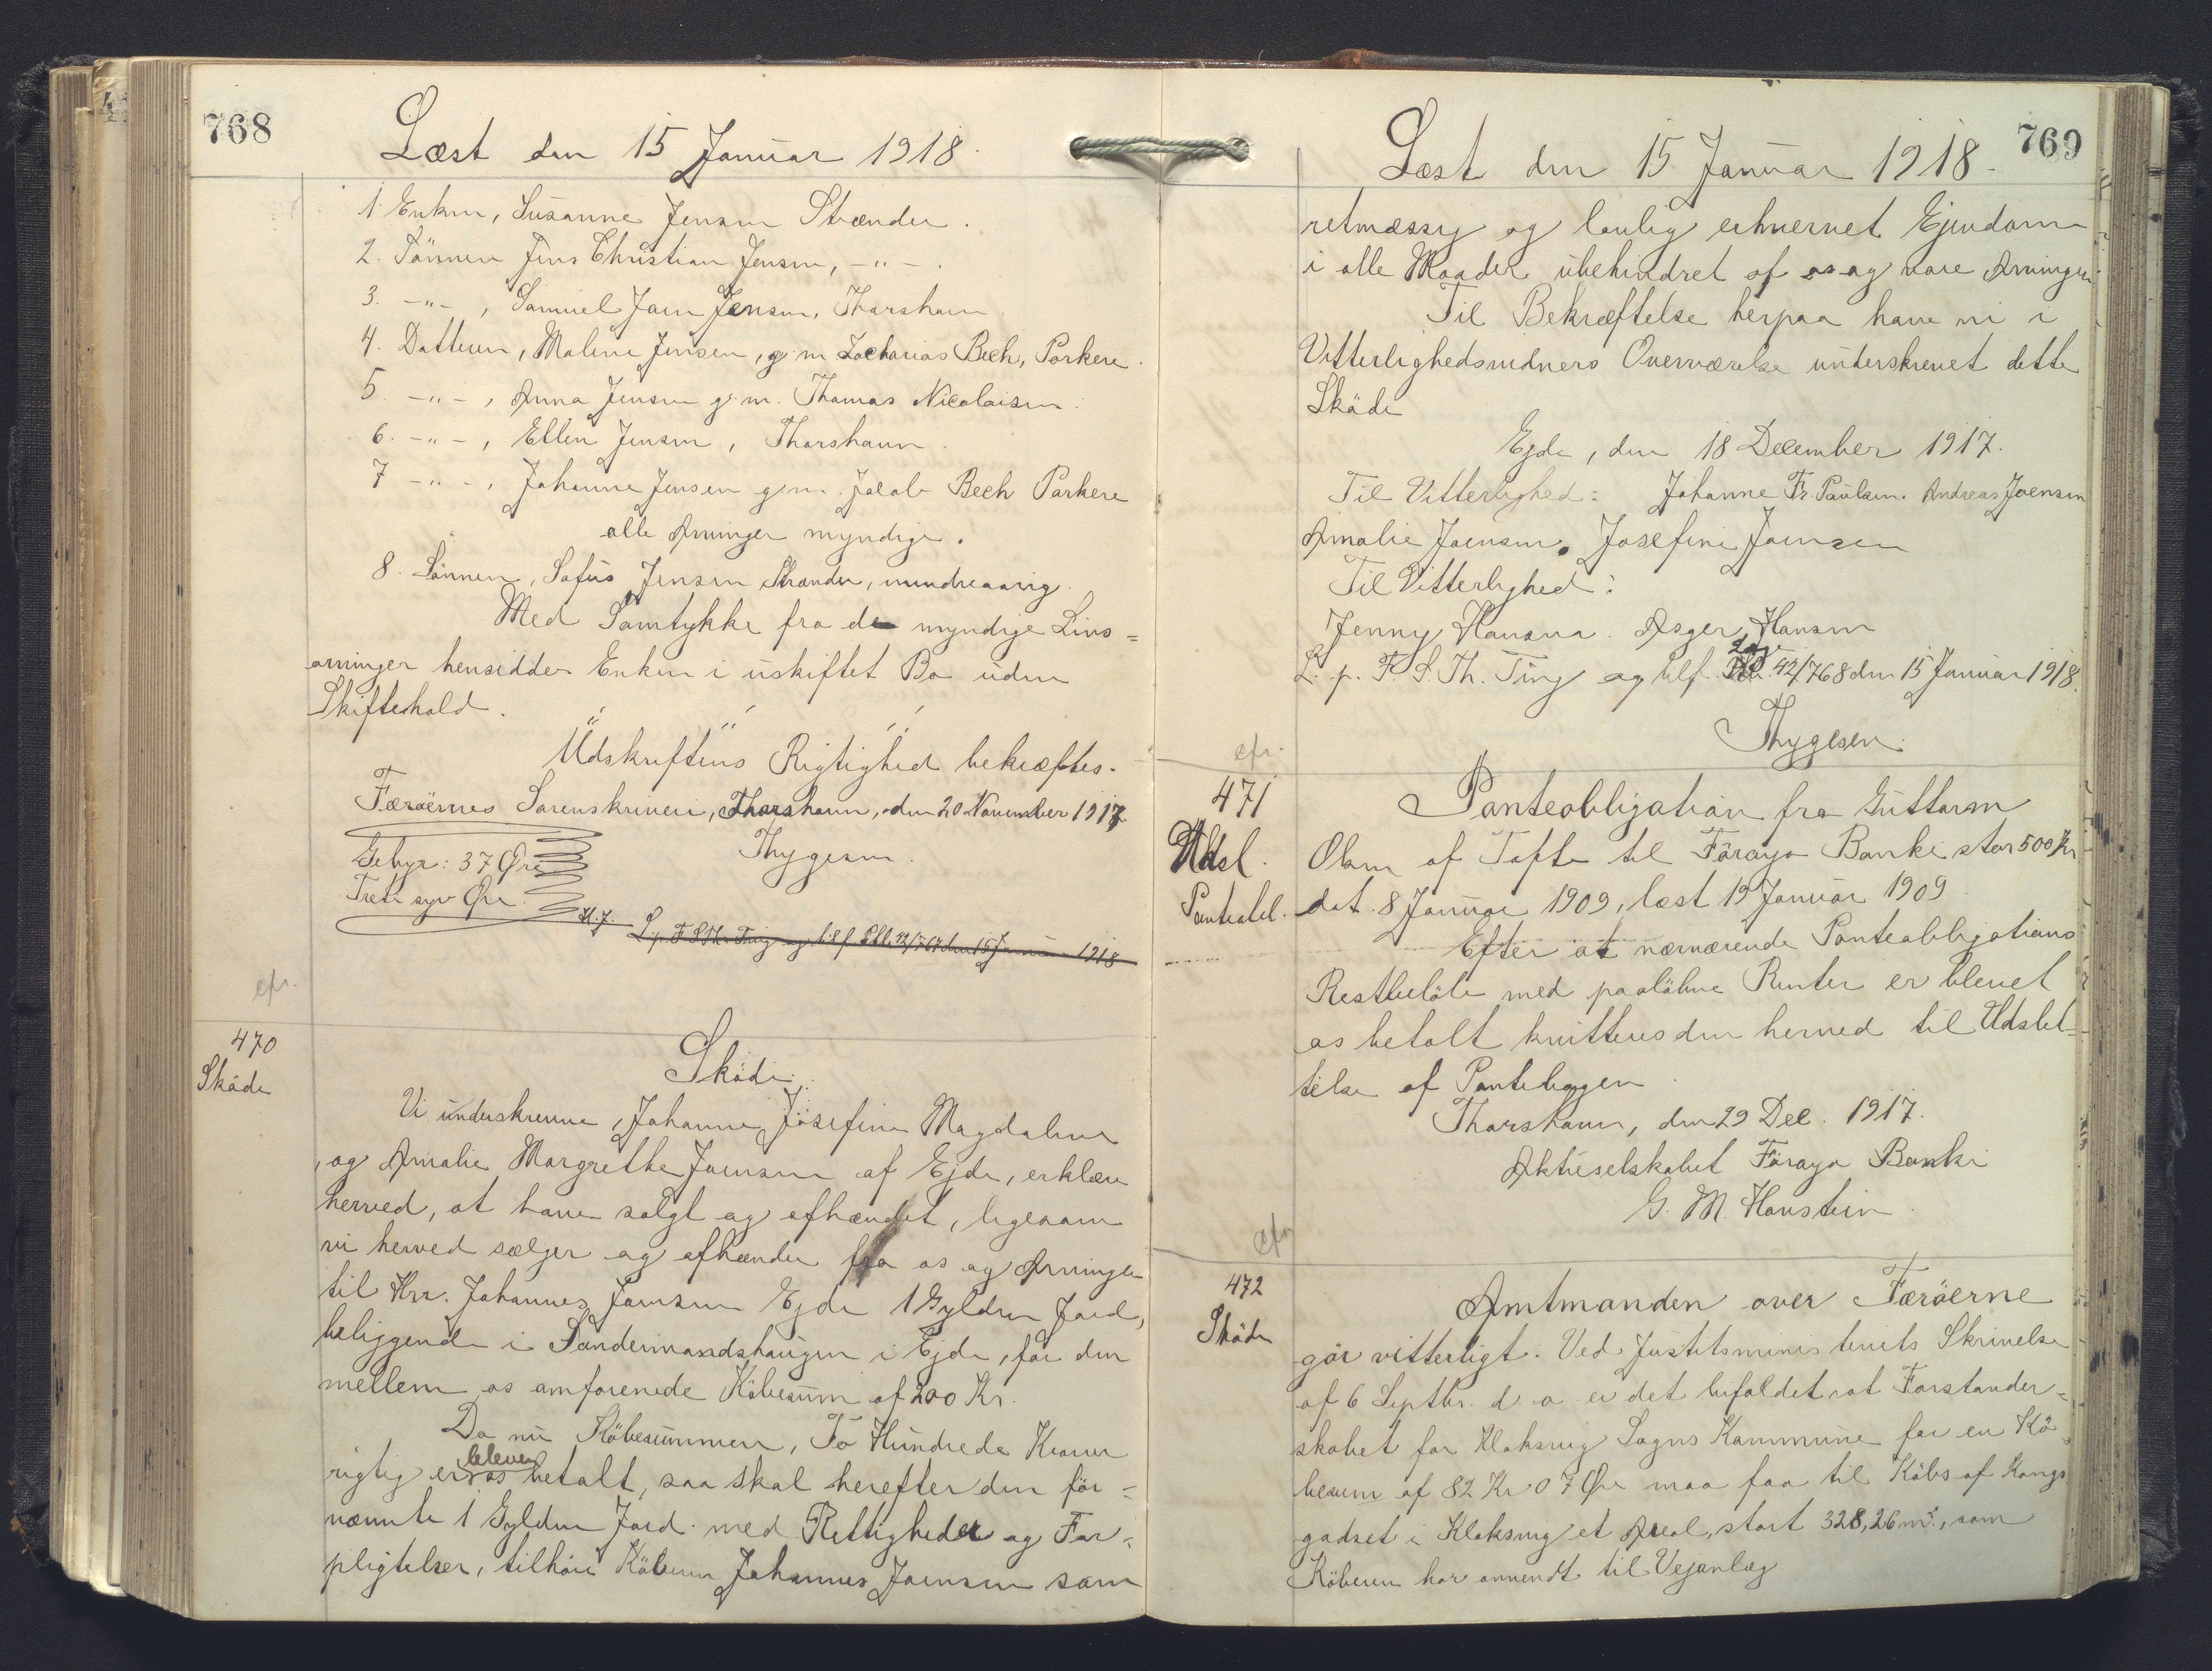 768
Læst den 15 Januar 1918.
1. Enken, Susanne Jensen Strænder.
2. Sönnen Jens Christian Jensen, -"-.
3. -"-, Samuel Joen Jensen, Thorshavn.
4. Datteren, Malene Jensen, g. m. Zacharias Bech, Porkere.
5. -"-, Anna Jensen g. m. Thomas Nicolaisen.
6. -"-, Ellen Jensen, Thorshavn.
7 -"-, Johanne Jensen g. m. Jacob Bech Porkere
alle Arvinger myndige.
8. Sönnen, Sofus Jensen Strænder, mindreaarig.
Med Samtykke fra de myndige Livs=
arvinger hensidder Enken i uskiftet Bo uden
Skiftehold.
Udskriftens Rigtighed bekræftes.
Færøernes Sorenskriveri, Thorshavn, den 20 November 1917.
Gebyr: 37 Øre
Thygesen.
Treti syv Øre.
H. J.
L. p. F. S. Th. Ting og tilf. Pbl. 42/767 den 15 Januar 1918
cfr.
470
Sköde
Sköde.
Vi underskrevne, Johanne Josefine Magdalene
og Amalie Margrethe Joensen af Ejde, erklære
herved, at have solgt og afhændet, ligesom
vi herved sælger og afhænder fra os og Arvinger
til Hrr. Johannes Joensen Ejde 1 Gylden Jord,
beliggende i Söndermandshaugen i Ejde, for den
mellem os omforenede Købesum af 200 Kr.
Da nu Købesummen, To Hundrede Kroner
rigtig er os bleven betalt, saa skal herefter den för=
nævnte 1 Gylden Jord med Rettigheder og For=
pligtelser, tilhøre Köberen Johannes Joensen som
769
Læst den 15 Januar 1918.
retmæssig og lovlig erhvervet Ejendom
i alle Maader ubehindret af os og vore Arvinger
Til Bekræftelse herpaa have vi i
Vitterlighedsvidners Overværelse underskrevet dette
Sköde
Ejde, den 18 December 1917.
Til Vitterlighed: Johanne Fr. Paulsen. Andreas Joensen
Amalie Joensen. Josefine Joensen
Til Vitterlighed:
Jenny Hansen. Asger Hansen
L. p. F. S. Th. Ting og tilf. 42/768 den 15 Januar 1918.
Thygesen.
cfr.
471
Udsl.
Panteobl.
Panteobligation fra Guttorm
Olsen af Tofte til Föroya Banki stor 500 Kr
dat. 8 Januar 1909, læst 19 Januar 1909
Efter at nærværende Panteobligations
Restbelöb med paalöbne Renter er blevet
os betalt kvitteres den herved til Udslet=
telse af Pantebogen.
Thorshavn, den 29 Dec. 1917.
Aktieselskabet Föroya Banki
G. M. Hanstein.
cfr
472
Sköde
Amtmanden over Færöerne
gör vitterligt: Ved Justitsministeriets Skrivelse
af 6 Septbr. d. a. er det bifaldet, at Forstander=
skabet for Klaksvig Sogns Kommune for en Kö=
besum af 82 Kr 07 Øre maa faa til Köbs af Kongs
godset i Klaksvig et Areal, stort 328,26 m², som
Köberen har anvendt til Vejanlæg.